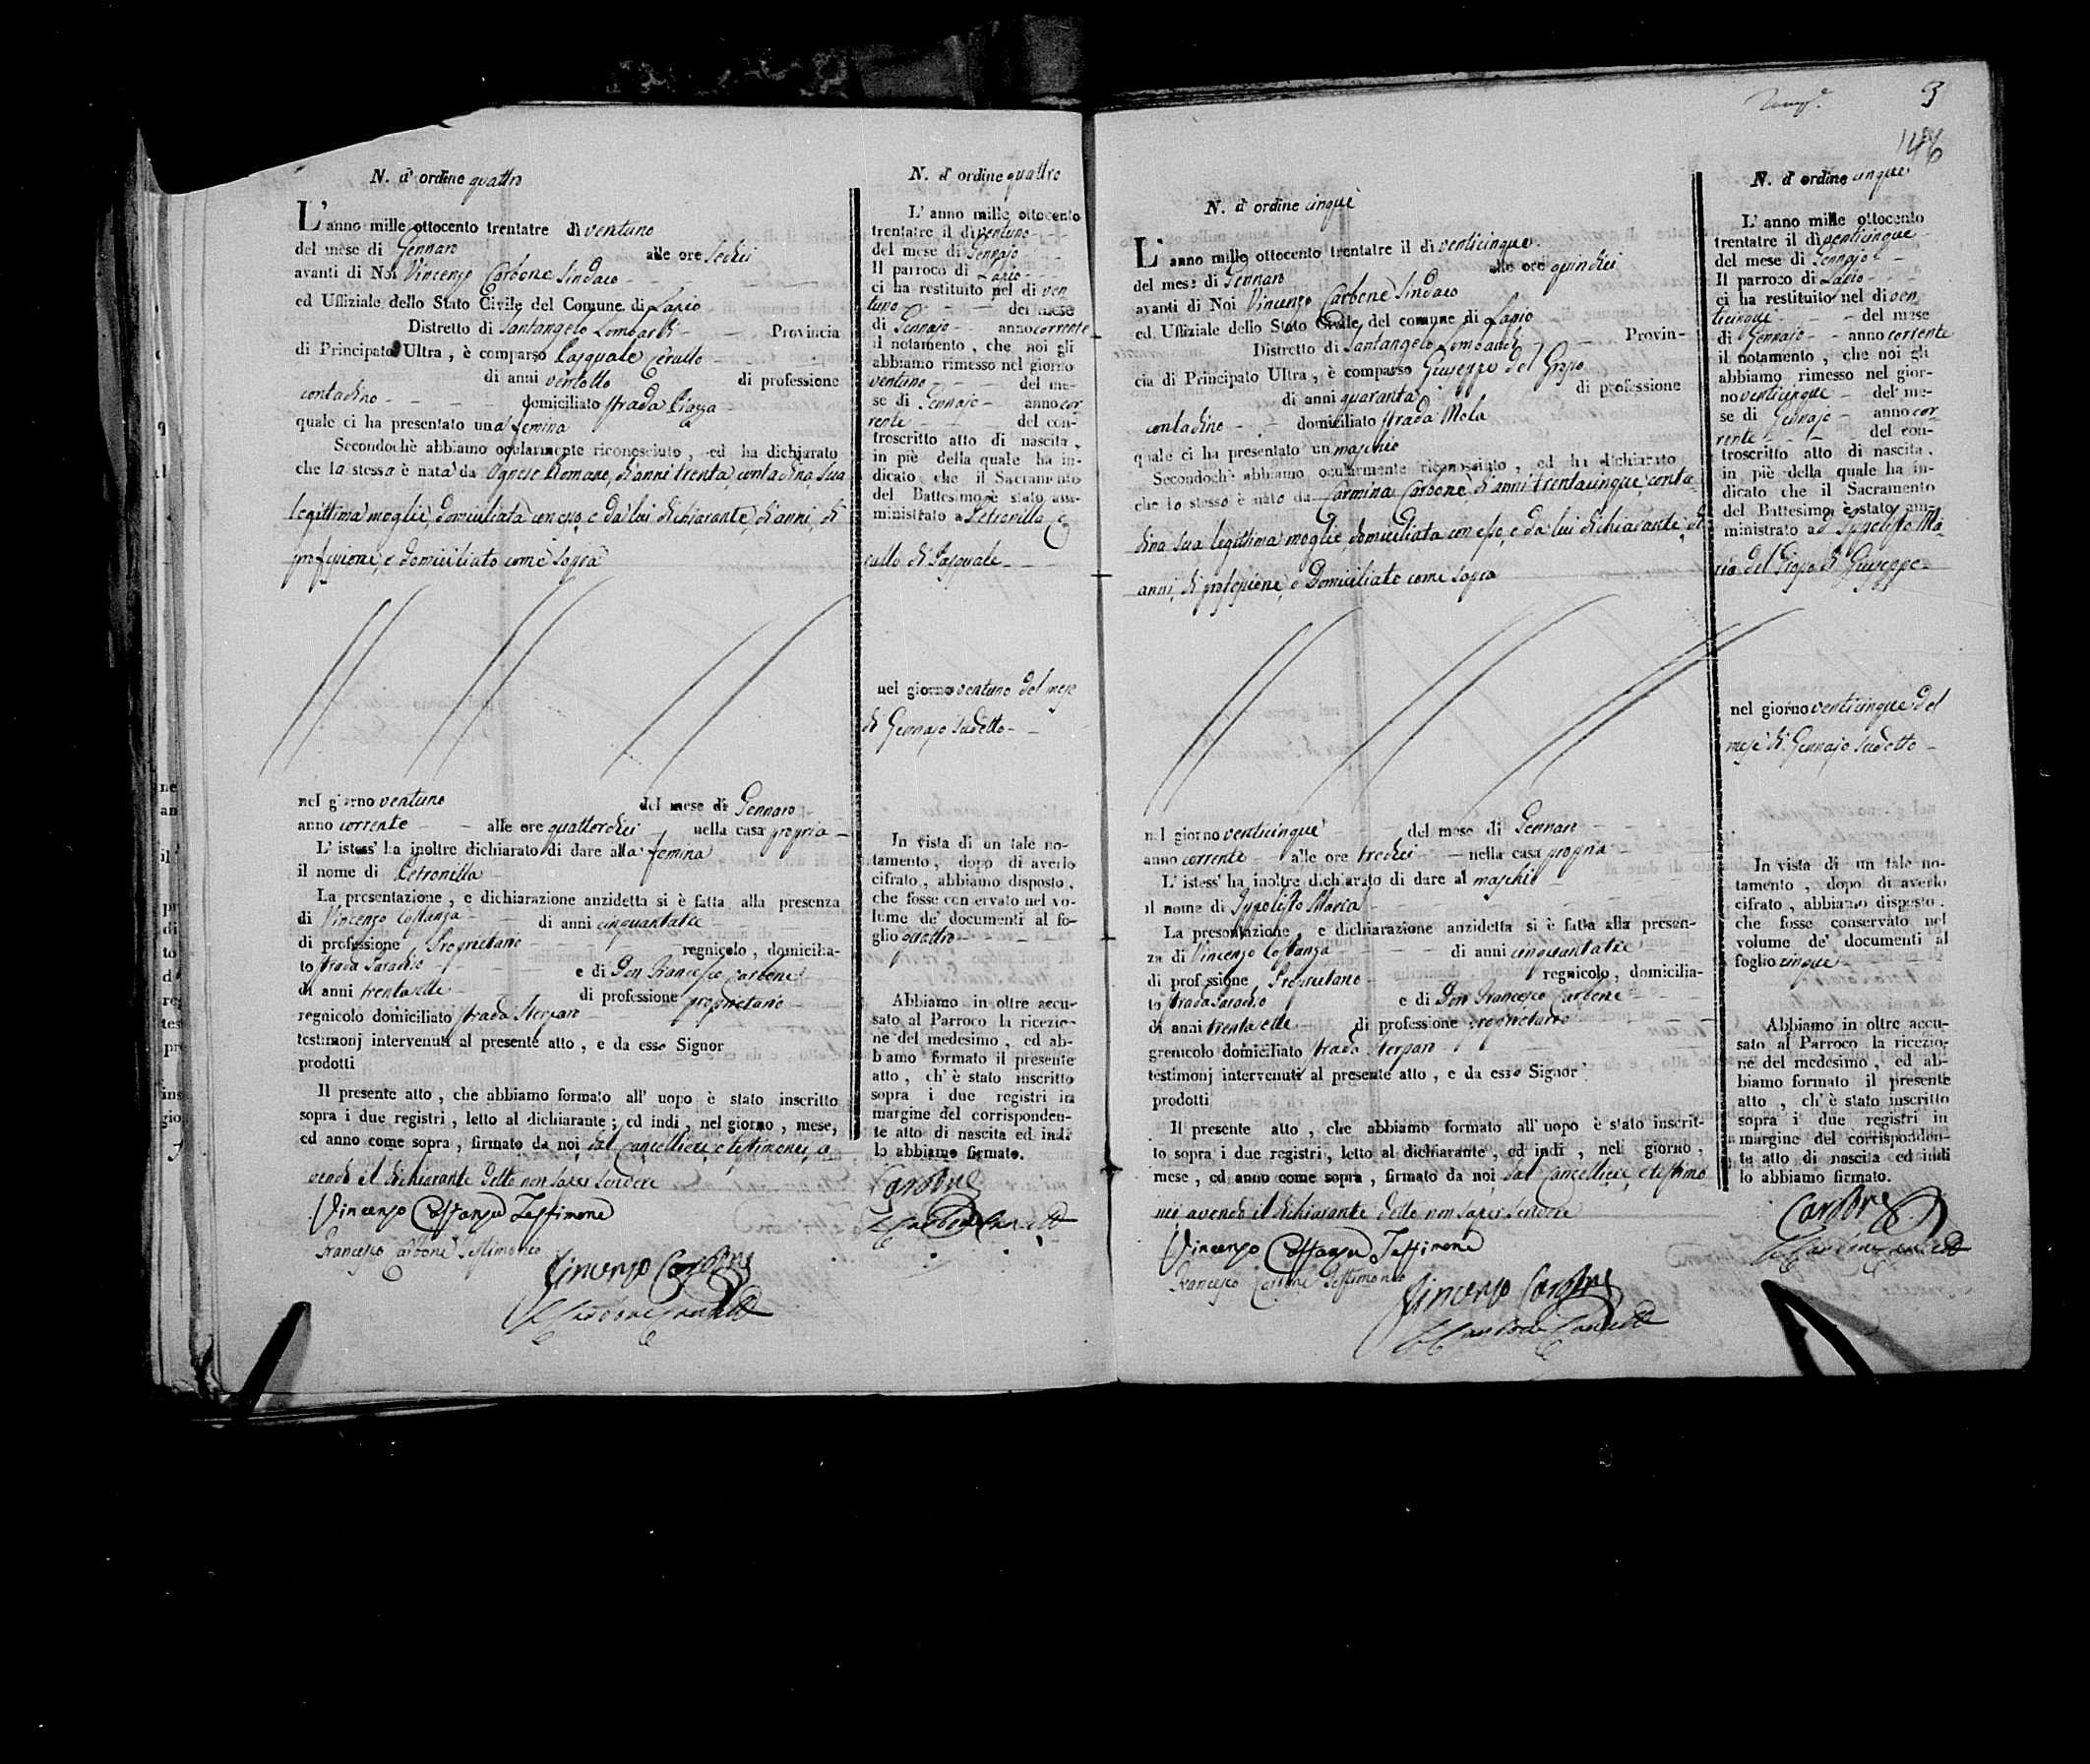 N. d' ordine quattro
L' anno mille ottocento trentatre dì ventuno
del mese di Gennaro alle ore sedici
avanti di Noi Vincenzo Carbone Sindaco
ed Uffiziale dello Stato Civile del Comune di Lapio
Distretto di Santangelo Lombardi Provincia
di Principato Ultra, è comparso Pasquale Cerullo
di anni ventotto di professione
contadino domiciliato strada Piazza
quale ci ha presentato una femina
Secondochè abbiamo ocularmente riconosciuto, ed ha dichiarato
che la stessa è nata da Agnese Romano, d'anni trenta, contadina, sua
legittima moglie, domiciliata con esso, e da lui dichiarante, d'anni, di
professione, e domiciliato come sopra
nel giorno ventuno del mese di Gennaro
anno corrente alle ore quattordici nella casa propria
L' istess' ha inoltre dichiarato di dare alla femina
il nome di Petronilla
La presentazione, e dichiarazione anzidetta si è fatta alla presenza
di Vincenzo Costanza di anni cinquantatre
di professione Proprietario regnicolo, domicilia-
to strada e di Don Francesco Carbone
di anni trentasette di professione proprietario
regnicolo domiciliato strada
testimonj intervenuti al presente atto, e da esso Signor
prodotti
Il presente atto, che abbiamo formato all' uopo è stato inscritto
sopra i due registri, letto al dichiarante; ed indi, nel giorno, mese,
ed anno come sopra, firmato da noi, dal cancelliere, e testimonii, a
vendo il dichiarante detto non saper scrivere
Vincenzo Costanza Testimone
Francesco Carbone Testimonio
Vincenzo Carbone
Carbone
N. d' ordine quattro
L' anno mille ottocento
trentatre il dì ventuno
del mese di Gennajo
Il parroco di Lapio
ci ha restituito nel dì ven
tuno del mese
di Gennajo anno corrente
il notamento, che noi gli
abbiamo rimesso nel giorno
ventuno del me-
se di Gennajo anno cor
rente del con-
troscritto atto di nascita,
in piè della quale ha in-
dicato che il Sacramento
del Battesimo è stato am-
ministrato a Petronilla Ce
rullo di Pasquale
nel giorno ventuno del mese
di Gennajo sudetto
In vista di un tale no-
tamento, dopo di averlo
cifrato, abbiamo disposto,
che fosse conservato nel vo-
lume de' documenti al fo-
glio quattro
Abbiamo in oltre accu-
sato al Parroco la ricezio-
ne del medesimo, ed ab-
biamo formato il presente
atto, ch' è stato inscritto
sopra i due registri in
margine del corrisponden-
te atto di nascita ed indi
lo abbiamo firmato.
Carbone
3
146
N. d' ordine cinque
L' anno mille ottocento trentatre il dì venticinque
del mese di Gennaro alle ore quindici
avanti di Noi Vincenzo Carbone Sindaco
ed Uffiziale dello Stato Civile del comune di Lapio
Distretto di Santangelo Lombardi Provin-
cia di Principato Ultra, è comparso Giuseppe del Grosso
di anni quaranta di professione
contadino domiciliato strada Mola
quale ci ha presentato un maschio
Secondochè abbiamo ocularmente riconosciuto, ed ha dichiarato
che lo stesso è nato da Carmina Carbone d'anni trentacinque, conta
dina sua legittima moglie, domiciliata con esso, e da lui dichiarante, d'
anni, di professione, e domiciliato come sopra
nel giorno venticinque del mese di Gennaro
anno corrente alle ore tredici nella casa propria
L' istess' ha inoltre dichiarato di dare al maschio
il nome di Ippolisto Maria
La presentazione, e dichiarazione anzidetta si è fatta alla presen-
za di Vincenzo Costanza di anni cinquantatre
di professione Proprietario regnicolo, domicilia-
to strada e di Don Francesco Carbone
di anni trentasette di professione proprietario
grenicolo domiciliato strada
testimonj intervenuti al presente atto, e da esso Signor
prodotti
Il presente atto, che abbiamo formato all' uopo è stato inscrit-
to sopra i due registri, letto al dichiarante, ed indi, nel giorno,
mese, ed anno come sopra, firmato da noi, dal cancelliere, e testimo
nii, avendo il dichiarante detto non saper scrivere
Vincenzo Costanza Testimone
Francesco Carbone Testimonio
Vincenzo Carbone
N. d' ordine cinque
L' anno mille ottocento
trentatre il dì venticinque
del mese di Gennajo
Il parroco di Lapio
ci ha restituito nel dì ven
ticinque del mese
di Gennajo anno corrente
il notamento, che noi gli
abbiamo rimesso nel gior-
no venticinque del me-
se di Gennajo anno cor-
rente del con-
troscritto atto di nascita,
in piè della quale ha in-
dicato che il Sacramento
del Battesimo è stato am-
ministrato ad Ippolisto Ma
ria del Grosso di Giuseppe
nel giorno venticinque del
mese di Gennajo sudetto
In vista di un tale no-
tamento, dopo di averlo
cifrato, abbiamo disposto,
che fosse conservato nel
volume de' documenti al
foglio cinque
Abbiamo in oltre accu-
sato al Parroco la ricezio-
ne del medesimo, ed ab-
biamo formato il presente
atto, ch' è stato inscritto
sopra i due registri in
margine del corrisponden-
te atto di nascita ed indi
lo abbiamo firmato.
Carbone